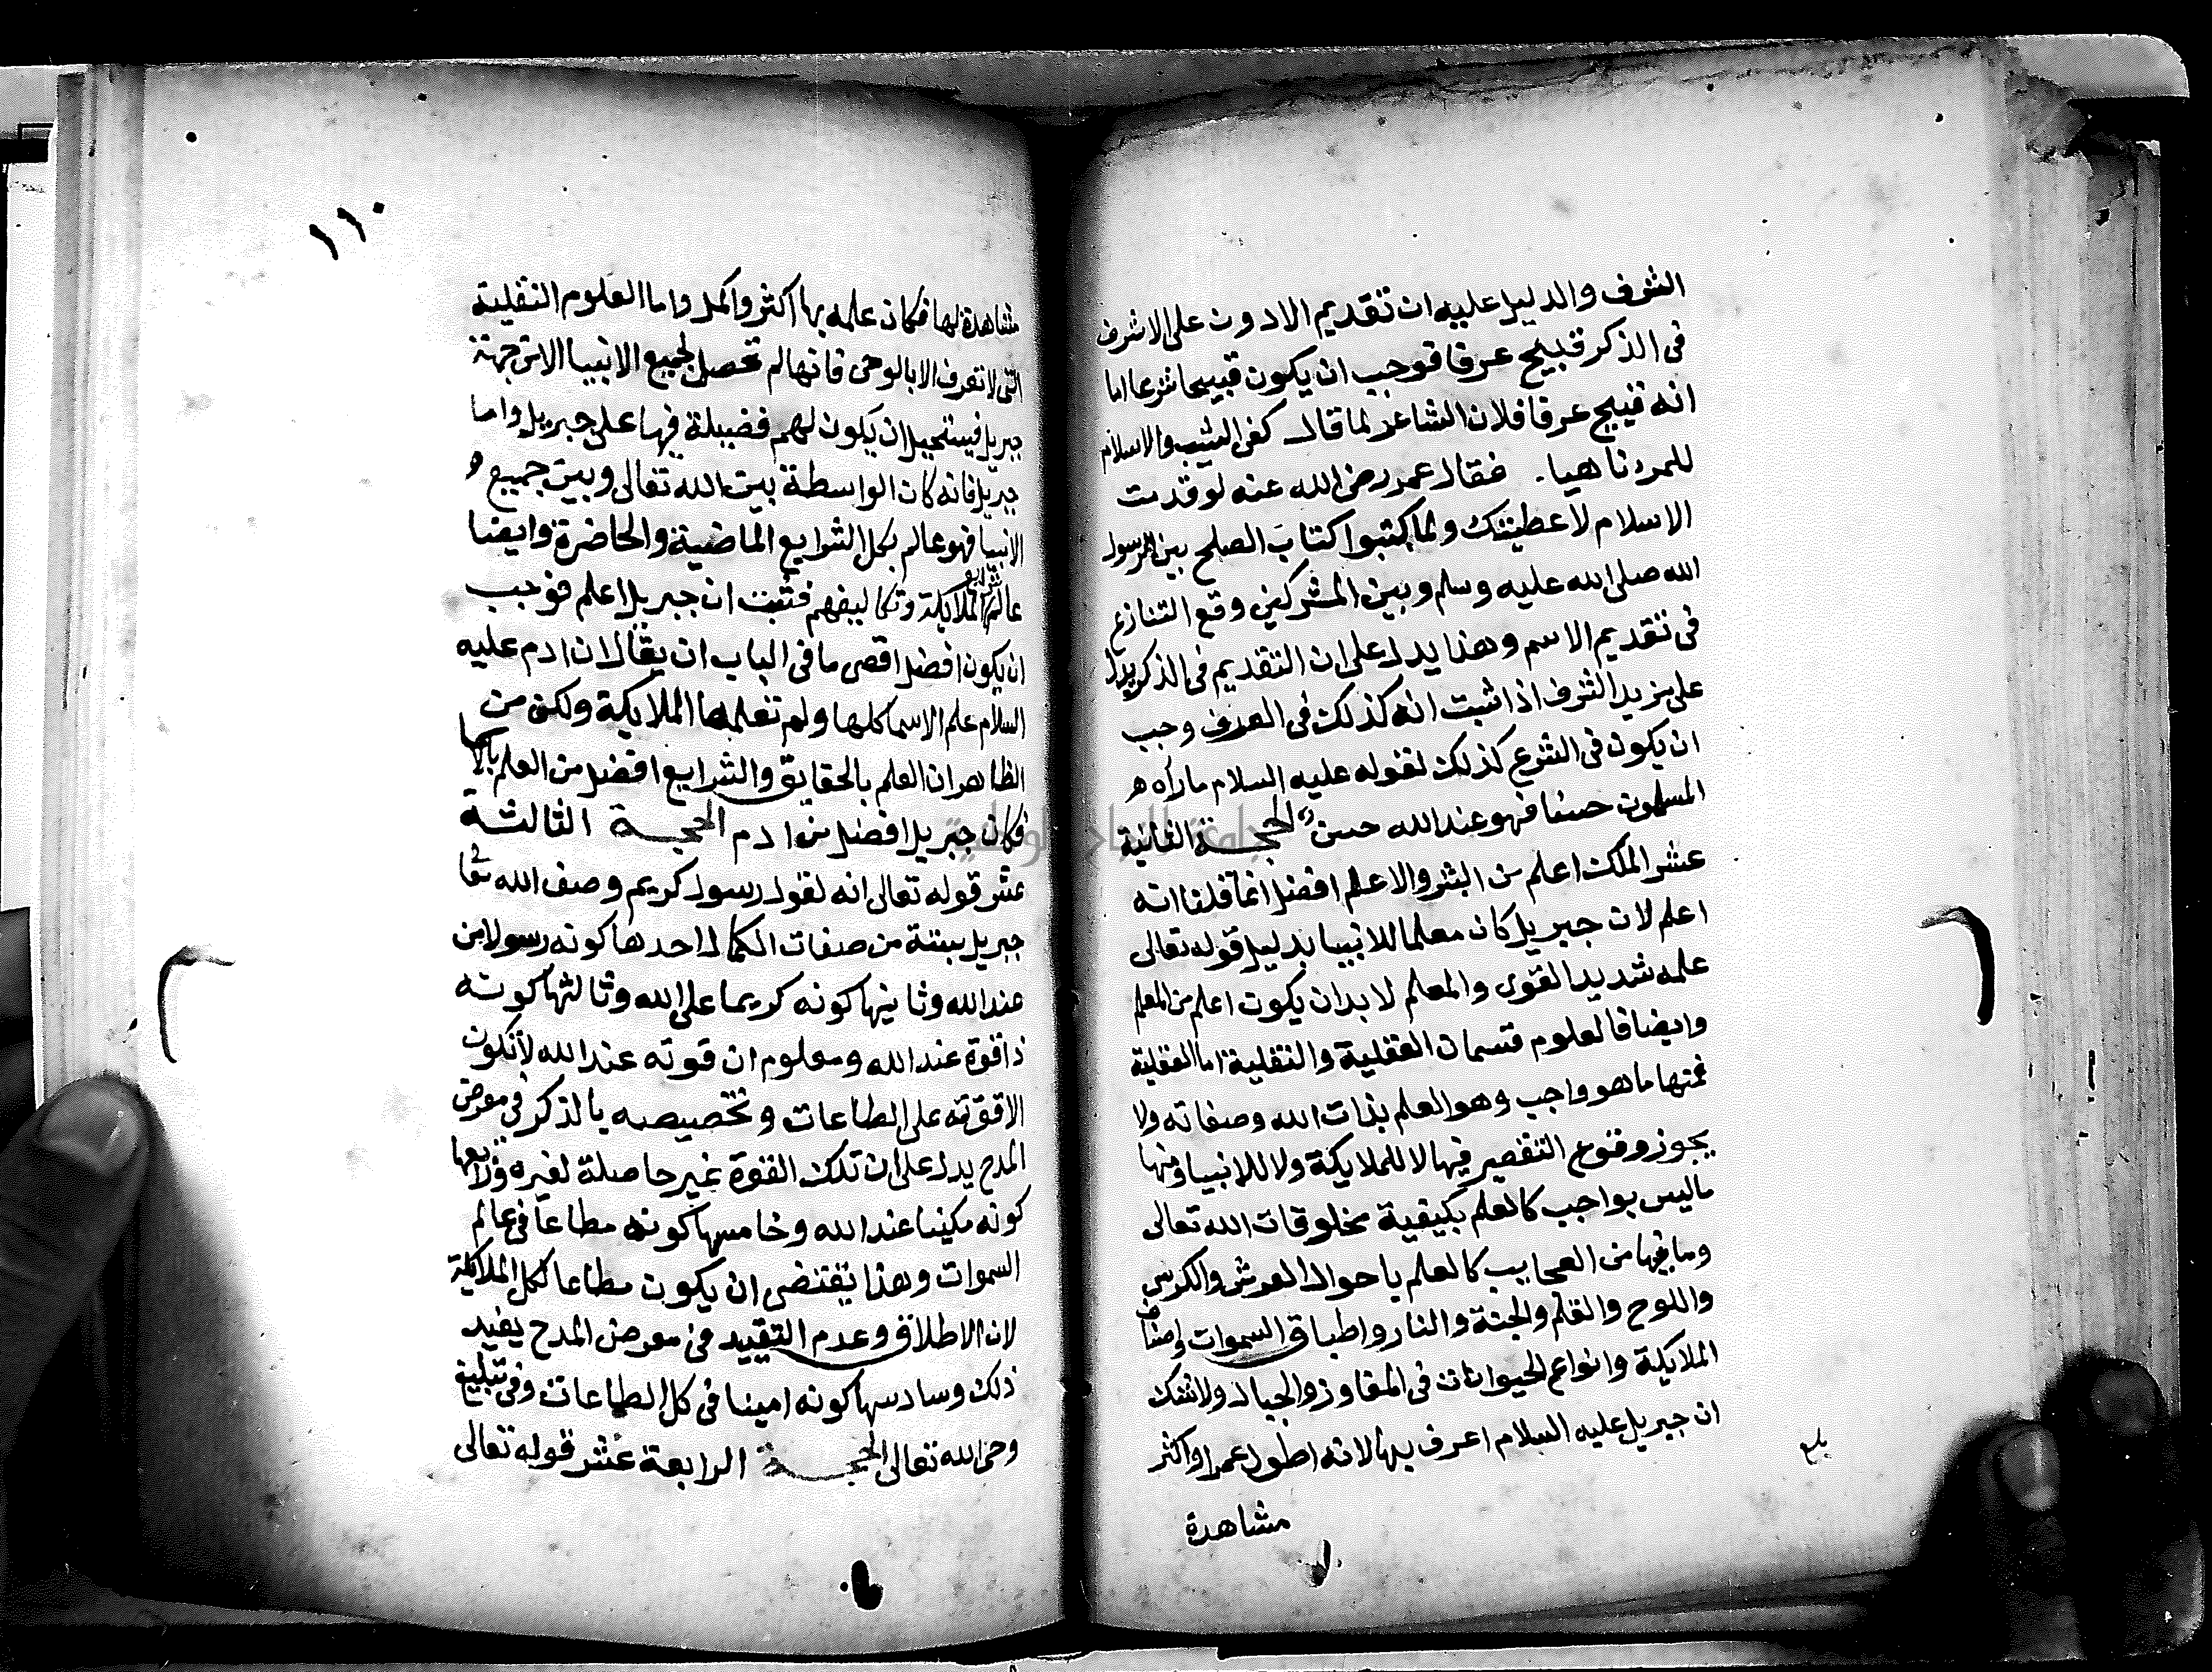 الشرف والدليل عليه ان تقديم الادون على الاشرف
فى الذكر قبيح عرفا فوجب ان يكون قبيحا شرعا اما
انه قبيح عرفا فلان الشاعر لما قال كفى الشيب والاسلام
للمرء ناهيا . فقال عمر رضى الله عنه لو قدمت
الاسلام لاعطيتك ولما كتبوا كتاب الصلح بين رسول
الله صلى الله عليه وسلم وبين المشركين وقع التنازع
فى تقديم الاسم وهذا يدل على ان التقديم فى الذكر يدل
على مزيد الشرف اذا ثبت انه كذلك فى العرف وجب
ان يكون فى الشرع كذلك لقوله عليه السلام ماراه
المسلمون حسنا فهو عند الله حسن الحجة الثانية
عشر الملك اعلم من البشر والاعلم افضل انما قلنا انه
اعلم لان جبريل كان معلما للانبيا بدليل قوله تعالى
علمه شديد القوى والمعلم لا بد ان يكون اعلم من المعلم
وايضا فالعلوم قسمان العقلية والنقلية اما العقلية
فمنها ما هو واجب وهو العلم بذات الله وصفاته ولا
يجوز وقوع التقصير فيها لا للملايكة ولا للانبيا ومنها
ماليس بواجب كالعلم بكيفية مخلوقات الله تعالى
وما فيها من العجايب كالعلم باحوال العرش والكرسى
واللوح والقلم والجنة والنار واطباق السموات واصناف
الملايكة وانواع الحيوانات فى المفاوز والجبال ولا شك
ان جبريل عليه السلام اعرف بها لانه اطول عمرا واكثر
بلغ
مشاهدة
١١٠
مشاهدة لها فكان علمه بها اكثر واكمل واما العلوم النقلية
التى لا تعرف الا بالوحى فانها لم تحصل لجميع الانبيا الا من جهة
جبريل فيستحيل ان يكون لهم فضيلة فيها على جبريل واما
جبريل فانه كان الواسطة بين الله تعالى وبين جميع
الانبيا فهو عالم بكل الشرايع الماضية والحاضرة وايضا
عالم بشرايع الملايكة وتكاليفهم فثبت ان جبريل اعلم فوجب
ان يكون افضل اقصى ما فى الباب ان يقال ان ادم عليه
السلام علم الاسما كلها ولم تعلمها الملايكة ولكن من
الظاهر ان العلم بالحقايق والشرايع افضل من العلم بالاسما
فكان جبريل افضل من ادم الحجة الثالثة
عشر قوله تعالى انه لقول رسول كريم وصف الله تعا
جبريل بستة من صفات الكمال احدها كونه رسولا من
عند الله وثانيها كونه كريما على الله وثالثها كونه
ذا قوة عند الله ومعلوم ان قوته عند الله لا تكون
الا قوته على الطاعات وتخصيصه بالذكر فى معرض
المدح يدل على ان تلك القوة غير حاصلة لغيره ورابعها
كونه مكينا عند الله وخامسها كونه مطاعا فى عالم
السموات وهذا يقتضى ان يكون مطاعا لكل الملايكة
لان الاطلاق وعدم التقييد فى معرض المدح يفيد
ذلك وسادسها كونه امينا فى كل الطاعات وفى تبليغ
وحى الله تعالى الحجة الرابعة عشر قوله تعالى
جامعة النجاح الوطنية